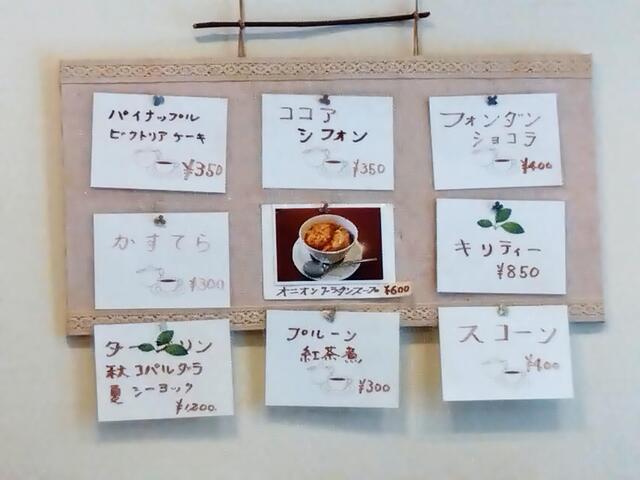 パイナップル
ビクトリアケーキ
¥350
ココア
シフォン
¥350
フォンダン
ショコラ
¥400
かすてら
¥300
オニオングラタンスープ ¥600
キリティー
¥850
ダージリン
秋 コパルダラ
夏 シーヨック
¥1,200.
プルーン
紅茶煮
¥300
スコーン
¥400